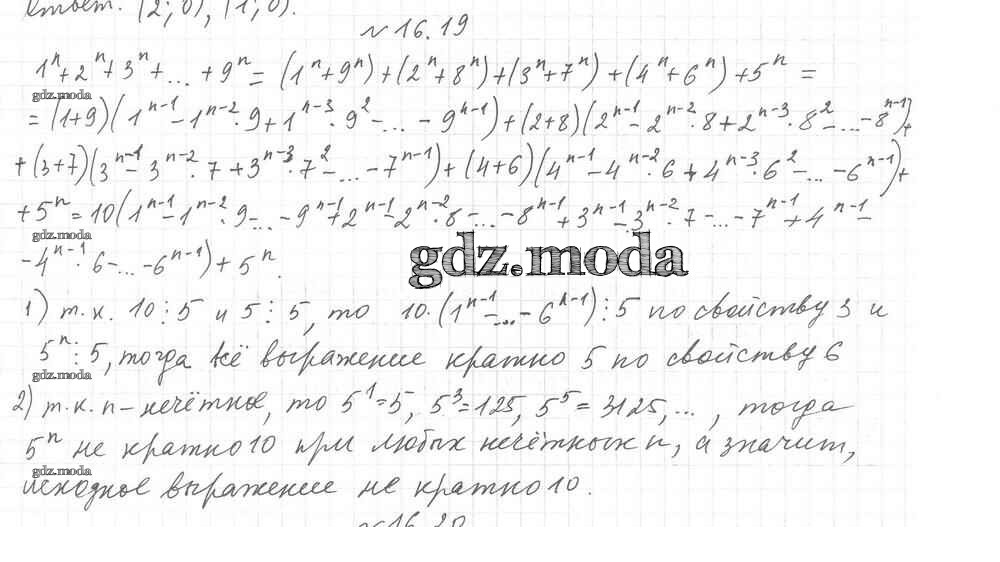 Ответ: (2; 0), (1; 0).
№ 16.19
1ⁿ + 2ⁿ + 3ⁿ + ... + 9ⁿ = (1ⁿ + 9ⁿ) + (2ⁿ + 8ⁿ) + (3ⁿ + 7ⁿ) + (4ⁿ + 6ⁿ) + 5ⁿ =
gdz.moda
= (1+9)(1ⁿ⁻¹ - 1ⁿ⁻² · 9 + 1ⁿ⁻³ · 9² - ... - 9ⁿ⁻¹) + (2+8)(2ⁿ⁻¹ - 2ⁿ⁻² · 8 + 2ⁿ⁻³ · 8² - ... - 8ⁿ⁻¹) +
+ (3+7)(3ⁿ⁻¹ - 3ⁿ⁻² · 7 + 3ⁿ⁻³ · 7² - ... - 7ⁿ⁻¹) + (4+6)(4ⁿ⁻¹ - 4ⁿ⁻² · 6 + 4ⁿ⁻³ · 6² - ... - 6ⁿ⁻¹) +
+ 5ⁿ = 10(1ⁿ⁻¹ - 1ⁿ⁻² · 9 - ... - 9ⁿ⁻¹ + 2ⁿ⁻¹ - 2ⁿ⁻² · 8 - ... - 8ⁿ⁻¹ + 3ⁿ⁻¹ - 3ⁿ⁻² · 7 - ... - 7ⁿ⁻¹ + 4ⁿ⁻¹ -
gdz.moda
gdz.moda
- 4ⁿ⁻¹ · 6 - ... - 6ⁿ⁻¹) + 5ⁿ.
1) т.к. 10 ⋮ 5 и 5 ⋮ 5, то 10 · (1ⁿ⁻¹ - ... - 6ⁿ⁻¹) ⋮ 5 по свойству 3 и
5ⁿ ⋮ 5, тогда всё выражение кратно 5 по свойству 6
gdz.moda
2) т.к. n - нечётное, то 5¹ = 5, 5³ = 125, 5⁵ = 3125, ..., тогда
5ⁿ не кратно 10 при любых нечётных n, а значит,
gdz.moda
исходное выражение не кратно 10.
№ 16.20